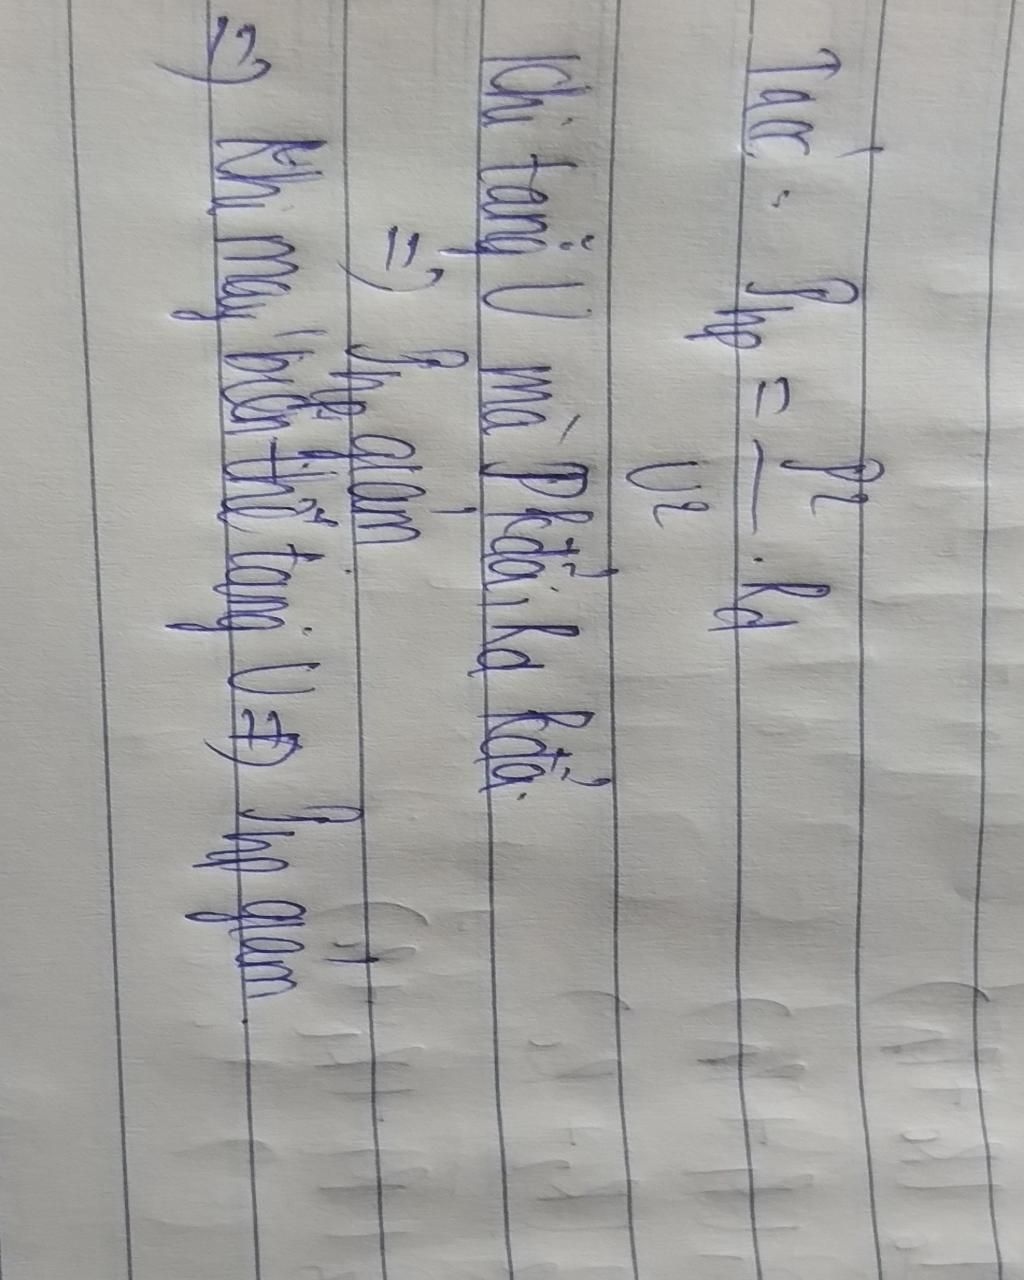 Ta có: Php = P² / U² . Rd
Khi tăng U mà P kđổi, Rd kđổi.
=> Php giảm.
=> Khi máy biến thế tăng U => Php giảm